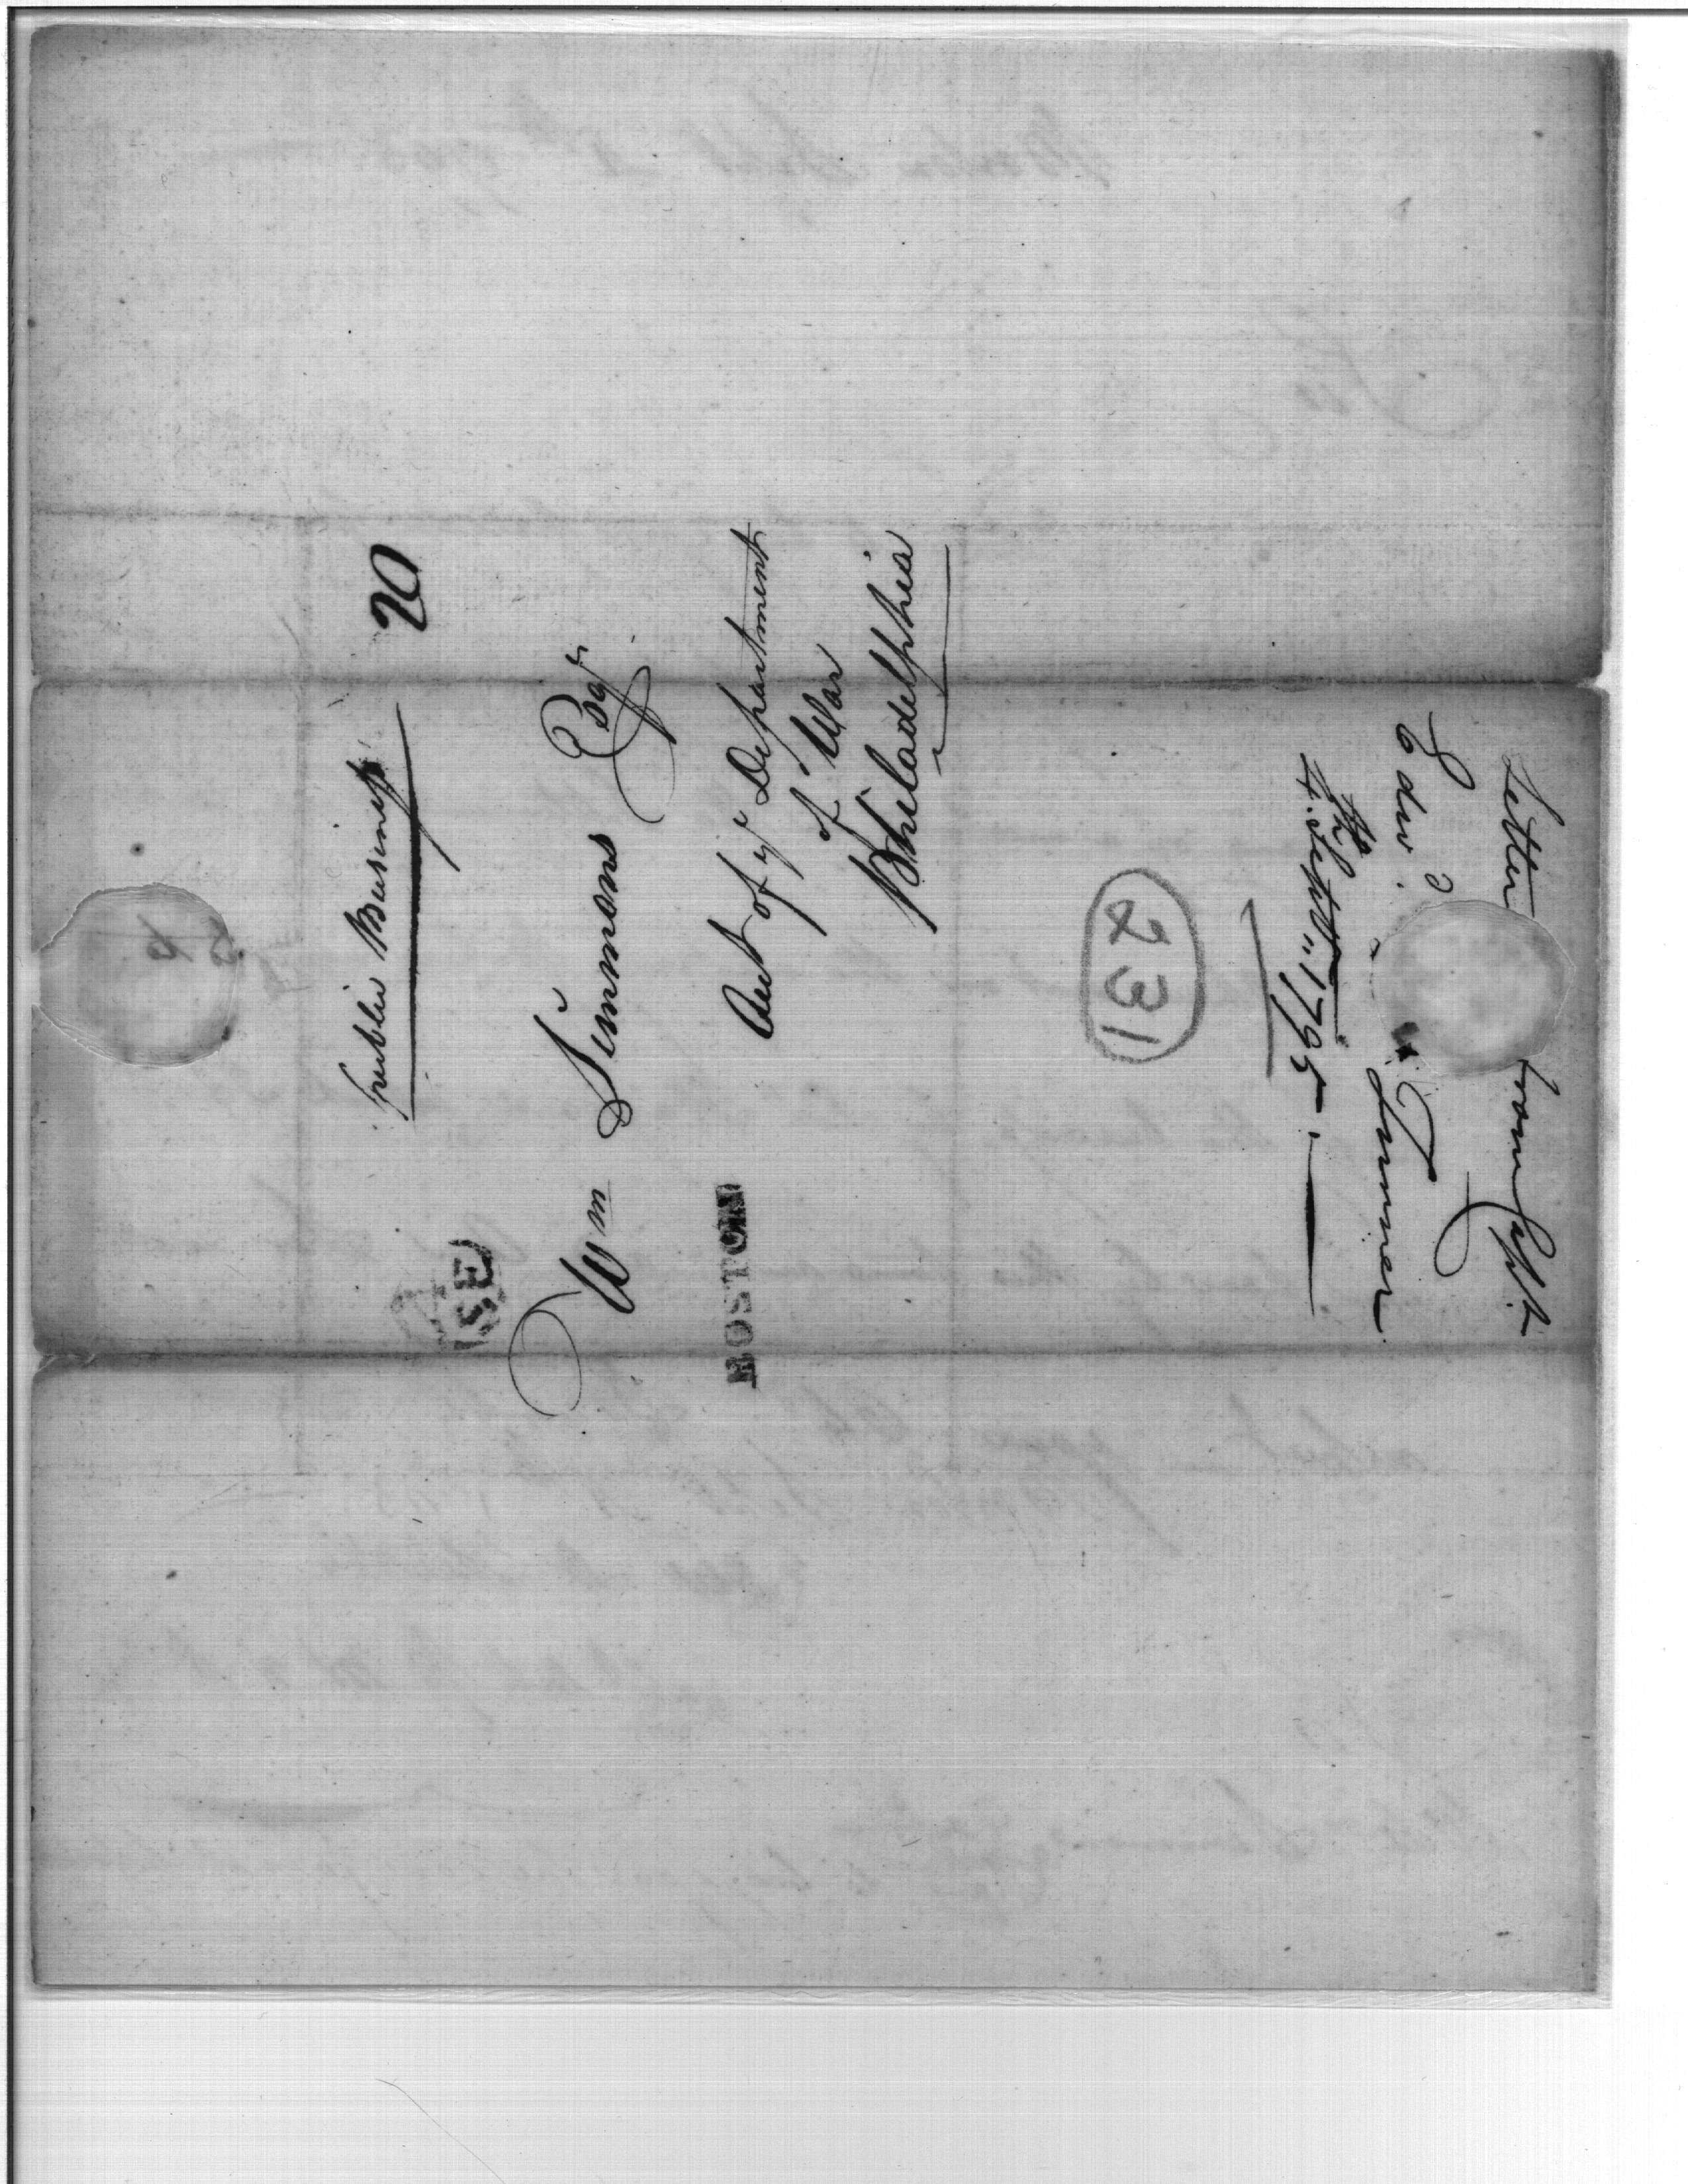 public Business
20
SE
Wm Simmons Esqr
Acct of ye Department
of War
Philadelphia
BOSTON
231
Letter from Capt.
Edwd. Turner
4th Septr. 1795.